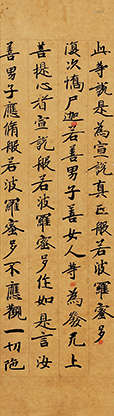 此等說是為宣說真正般若波羅蜜多
復次憍尸迦若善男子善女人等為發无上
菩提心者宣說般若波羅蜜多作如是言汝
善男子應脩般若波羅蜜多不應觀一切陁